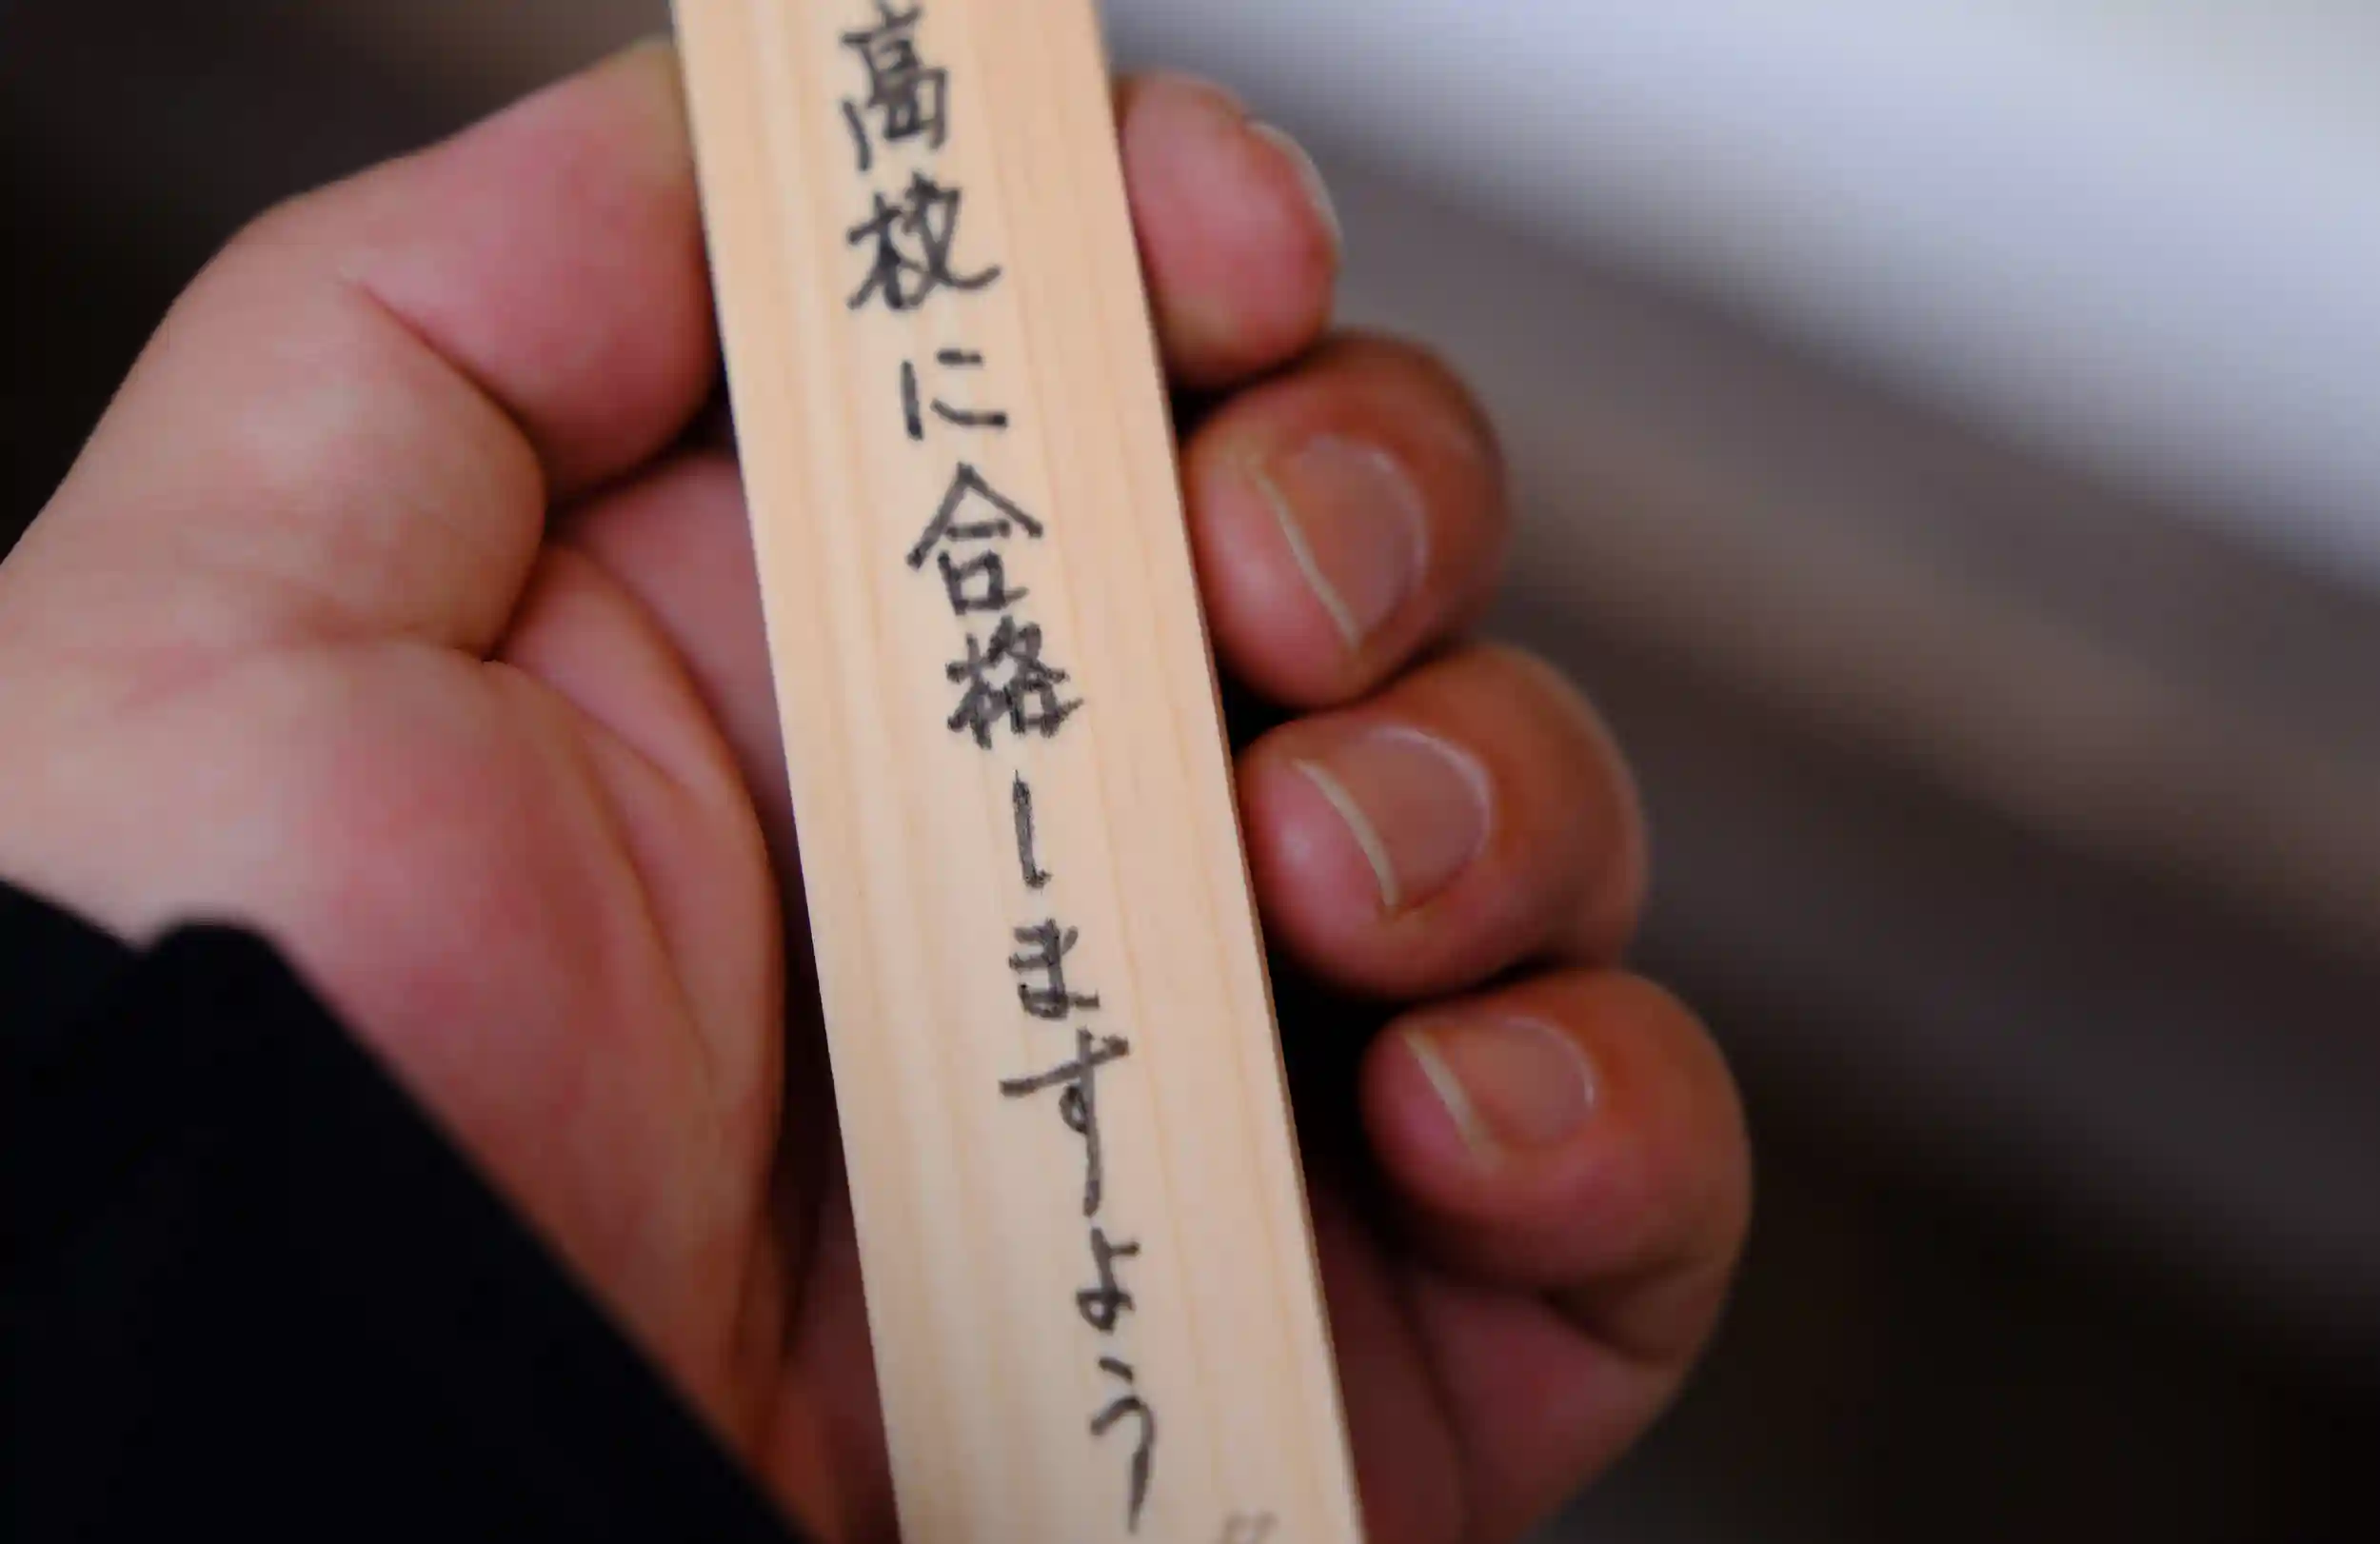 高校に合格しますよう